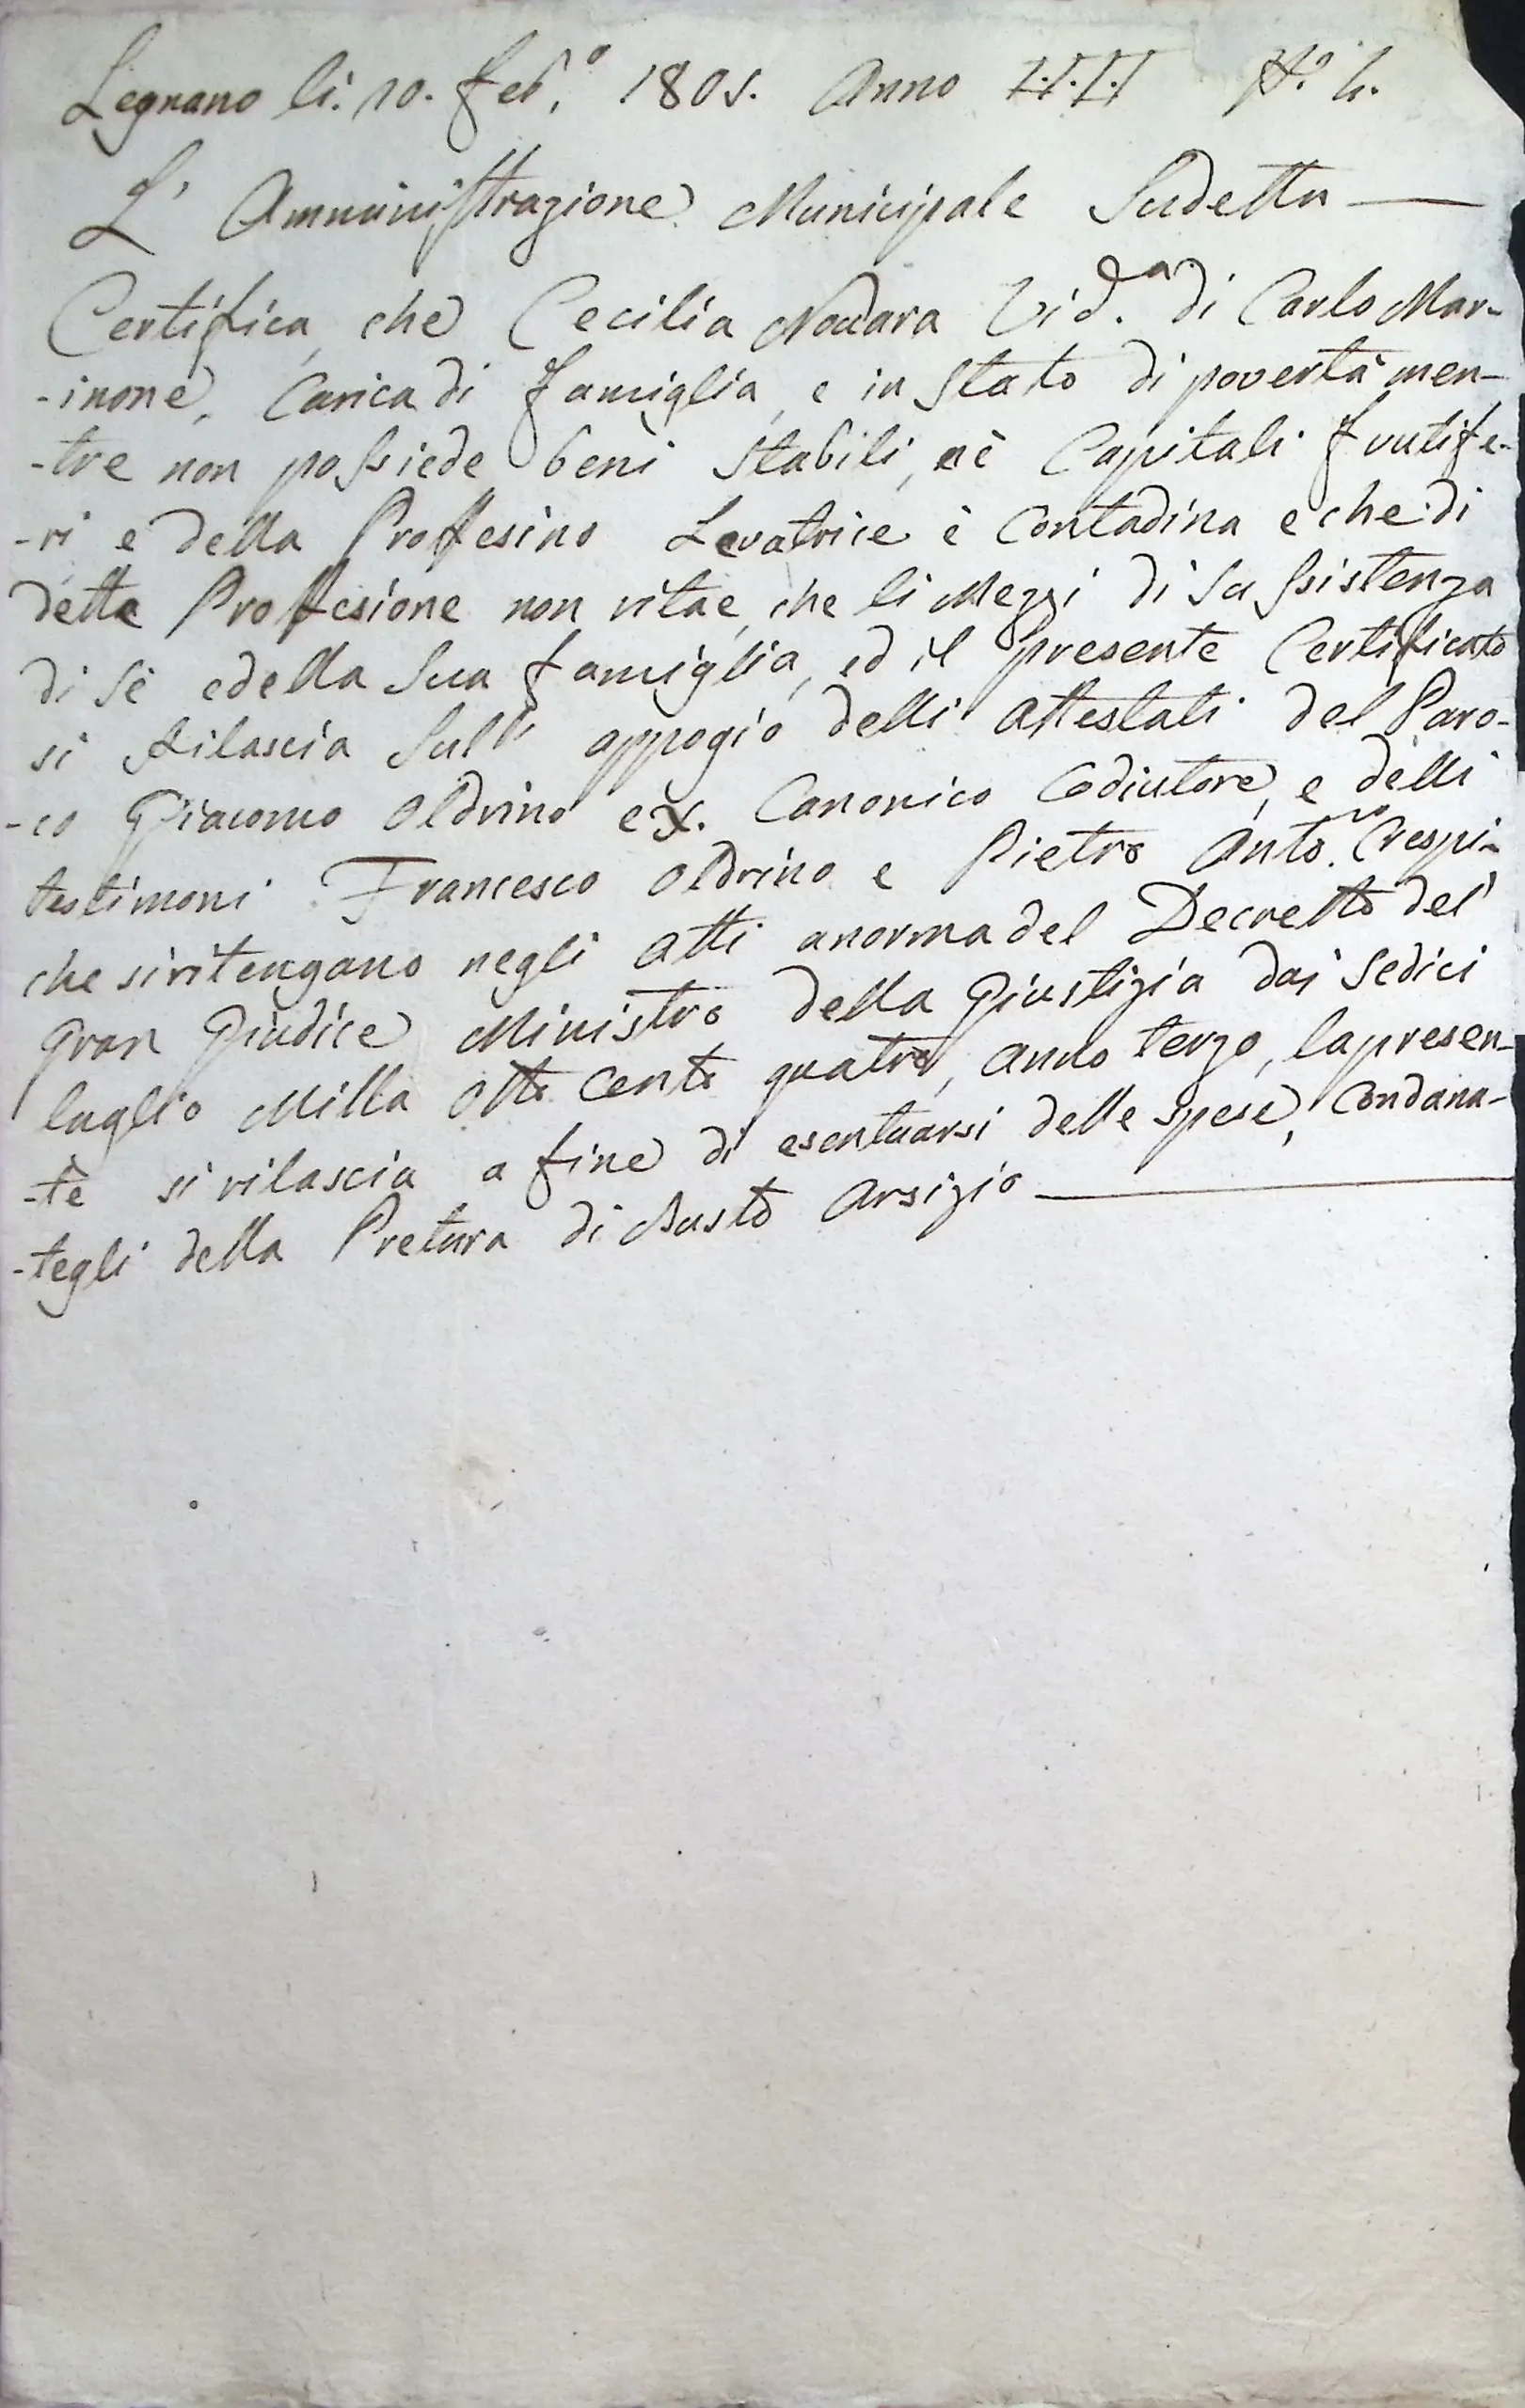 Legnano li. 10. feb.º 1805. Anno IV Nº 4.
L' Amministrazione Municipale Sudetta
Certifica, che Cecilia Vid.ª di Carlo Mar-
-inone, Carica di famiglia, e in Stato di povertà men-
-tre non possiede beni Stabili, nè Capitali frutife-
-ri e della Proffesino Levatrice è Contadina e che di
detta Proffesione non ritae, che li Mezzi di Sussistenza
di Sè e della Sua famiglia, ed il presente Certificato
si Rilascia Sull' appogio delli Attestati del Paro-
-co Giacomo Oldrino ex. Canonico Codiutore, e delli
testimoni Francesco Oldrino e Pietro Anto.º Crespi-
che si ritengano negli Atti a norma del Decretto del'
Gran Giudice Ministro della Giustizia dai Sedici
luglio Milla Otto Cento quatro, anno terzo, la presen-
-te si rilascia a fine di esentuarsi delle spese, Condana-
-tegli della Pretura di Busto Arsizio